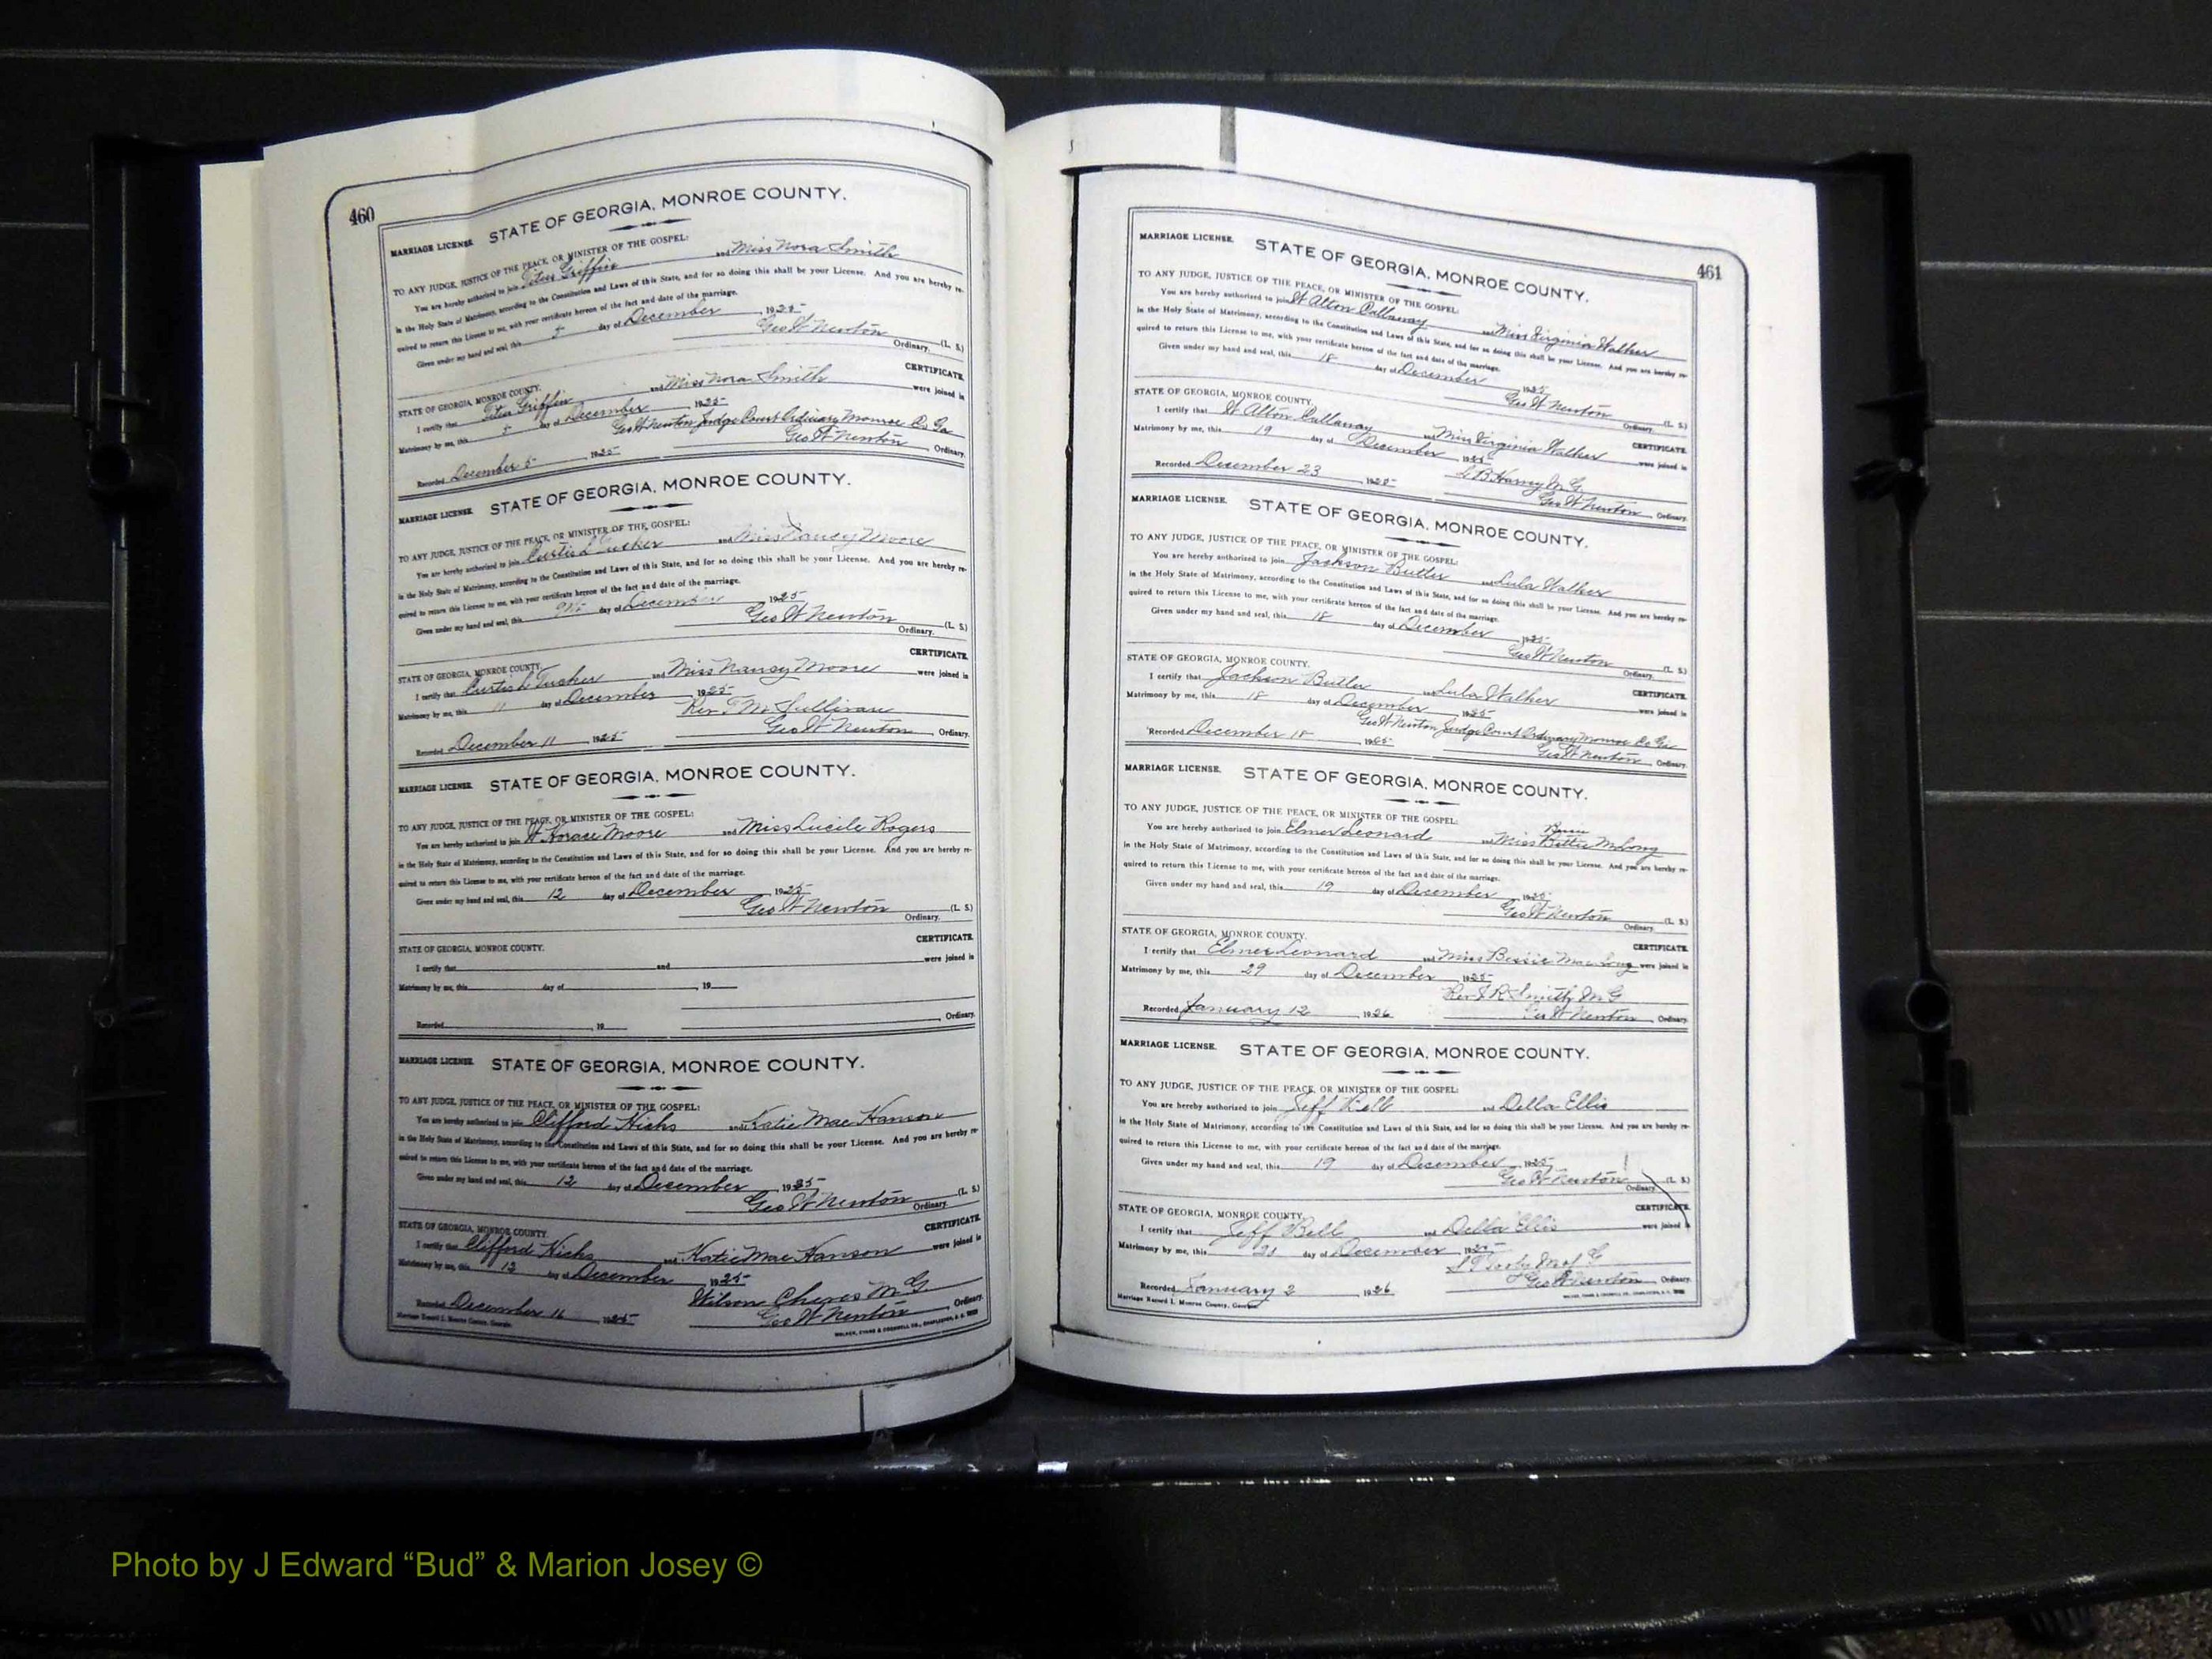 460
STATE OF GEORGIA, MONROE COUNTY.
MARRIAGE LICENSE.
TO ANY JUDGE, JUSTICE OF THE PEACE, OR MINISTER OF THE GOSPEL:
You are hereby authorized to join Titus Griffin and Miss Nora Smith
in the Holy State of Matrimony, according to the Constitution and Laws of this State, and for so doing this shall be your License. And you are hereby re-
quired to return this License to me, with your certificate hereon of the fact and date of the marriage.
Given under my hand and seal, this 5 day of December, 1925
Geo W Newton (L. S.)
Ordinary.
STATE OF GEORGIA, MONROE COUNTY. CERTIFICATE.
I certify that Titus Griffin and Miss Nora Smith were joined in
Matrimony by me, this 5 day of December, 1925
Geo W Newton Judge Court Ordinary Monroe Co Ga
Recorded December 5, 1925 Geo W Newton, Ordinary.
MARRIAGE LICENSE. STATE OF GEORGIA, MONROE COUNTY.
TO ANY JUDGE, JUSTICE OF THE PEACE, OR MINISTER OF THE GOSPEL:
You are hereby authorized to join Curtis L Tucker and Miss Nancy Moore
in the Holy State of Matrimony, according to the Constitution and Laws of this State, and for so doing this shall be your License. And you are hereby re-
quired to return this License to me, with your certificate hereon of the fact and date of the marriage.
Given under my hand and seal, this 9th day of December, 1925
Geo W Newton (L. S.)
Ordinary.
STATE OF GEORGIA, MONROE COUNTY. CERTIFICATE.
I certify that Curtis L Tucker and Miss Nancy Moore were joined in
Matrimony by me, this 11 day of December, 1925
Rev M Sullivan
Recorded December 11, 1925 Geo W Newton, Ordinary.
MARRIAGE LICENSE. STATE OF GEORGIA, MONROE COUNTY.
TO ANY JUDGE, JUSTICE OF THE PEACE, OR MINISTER OF THE GOSPEL:
You are hereby authorized to join W Horace Moore and Miss Lucile Rogers
in the Holy State of Matrimony, according to the Constitution and Laws of this State, and for so doing this shall be your License. And you are hereby re-
quired to return this License to me, with your certificate hereon of the fact and date of the marriage.
Given under my hand and seal, this 12 day of December, 1925
Geo W Newton (L. S.)
Ordinary.
STATE OF GEORGIA, MONROE COUNTY. CERTIFICATE.
I certify that and were joined in
Matrimony by me, this day of, 19
Recorded, 19 Ordinary.
MARRIAGE LICENSE. STATE OF GEORGIA, MONROE COUNTY.
TO ANY JUDGE, JUSTICE OF THE PEACE, OR MINISTER OF THE GOSPEL:
You are hereby authorized to join Clifford Hicks and Katie Mae Hanson
in the Holy State of Matrimony, according to the Constitution and Laws of this State, and for so doing this shall be your License. And you are hereby re-
quired to return this License to me, with your certificate hereon of the fact and date of the marriage.
Given under my hand and seal, this 12 day of December, 1925
Geo W Newton (L. S.)
Ordinary.
STATE OF GEORGIA, MONROE COUNTY. CERTIFICATE.
I certify that Clifford Hicks and Katie Mae Hanson were joined in
Matrimony by me, this 12 day of December, 1925
Wilson Cheves M G.
Recorded December 16, 1925 Geo W Newton, Ordinary.
Marriage Record I. Monroe County, Georgia. WALKER, EVANS & COGSWELL CO., CHARLESTON, S. C.
461
MARRIAGE LICENSE. STATE OF GEORGIA, MONROE COUNTY.
TO ANY JUDGE, JUSTICE OF THE PEACE, OR MINISTER OF THE GOSPEL:
You are hereby authorized to join W Alton Callaway and Miss Virginia Walker
in the Holy State of Matrimony, according to the Constitution and Laws of this State, and for so doing this shall be your License. And you are hereby re-
quired to return this License to me, with your certificate hereon of the fact and date of the marriage.
Given under my hand and seal, this 18 day of December, 1925
Geo W Newton (L. S.)
Ordinary.
STATE OF GEORGIA, MONROE COUNTY. CERTIFICATE.
I certify that W Alton Callaway and Miss Virginia Walker were joined in
Matrimony by me, this 19 day of December, 1925
S B Harvey M. G.
Recorded December 23, 1925 Geo W Newton, Ordinary.
MARRIAGE LICENSE. STATE OF GEORGIA, MONROE COUNTY.
TO ANY JUDGE, JUSTICE OF THE PEACE, OR MINISTER OF THE GOSPEL:
You are hereby authorized to join Jackson Butler and Lula Walker
in the Holy State of Matrimony, according to the Constitution and Laws of this State, and for so doing this shall be your License. And you are hereby re-
quired to return this License to me, with your certificate hereon of the fact and date of the marriage.
Given under my hand and seal, this 18 day of December, 1925
Geo W Newton (L. S.)
Ordinary.
STATE OF GEORGIA, MONROE COUNTY. CERTIFICATE.
I certify that Jackson Butler and Lula Walker were joined in
Matrimony by me, this 18 day of December, 1925
Geo W Newton Judge Court Ordinary Monroe Co Ga
Recorded December 18, 1925 Geo W Newton, Ordinary.
MARRIAGE LICENSE. STATE OF GEORGIA, MONROE COUNTY.
TO ANY JUDGE, JUSTICE OF THE PEACE, OR MINISTER OF THE GOSPEL:
You are hereby authorized to join Elmer Leonard and Miss Bettie M Long
in the Holy State of Matrimony, according to the Constitution and Laws of this State, and for so doing this shall be your License. And you are hereby re-
quired to return this License to me, with your certificate hereon of the fact and date of the marriage.
Given under my hand and seal, this 19 day of December, 1925
Geo W Newton (L. S.)
Ordinary.
STATE OF GEORGIA, MONROE COUNTY. CERTIFICATE.
I certify that Elmer Leonard and Miss Bessie Mae Long were joined in
Matrimony by me, this 29 day of December, 1925
Rev S R Smith M G
Recorded January 12, 1926 Geo W Newton, Ordinary.
MARRIAGE LICENSE. STATE OF GEORGIA, MONROE COUNTY.
TO ANY JUDGE, JUSTICE OF THE PEACE, OR MINISTER OF THE GOSPEL:
You are hereby authorized to join Jeff Bell and Della Ellis
in the Holy State of Matrimony, according to the Constitution and Laws of this State, and for so doing this shall be your License. And you are hereby re-
quired to return this License to me, with your certificate hereon of the fact and date of the marriage.
Given under my hand and seal, this 19 day of December, 1925
Geo W Newton (L. S.)
Ordinary.
STATE OF GEORGIA, MONROE COUNTY. CERTIFICATE.
I certify that Jeff Bell and Della Ellis were joined in
Matrimony by me, this 21 day of December, 1925
M of G
Recorded January 2, 1926 Geo W Newton, Ordinary.
Marriage Record I. Monroe County, Georgia WALKER, EVANS & COGSWELL CO., CHARLESTON, S. C.
Photo by J Edward “Bud” & Marion Josey ©